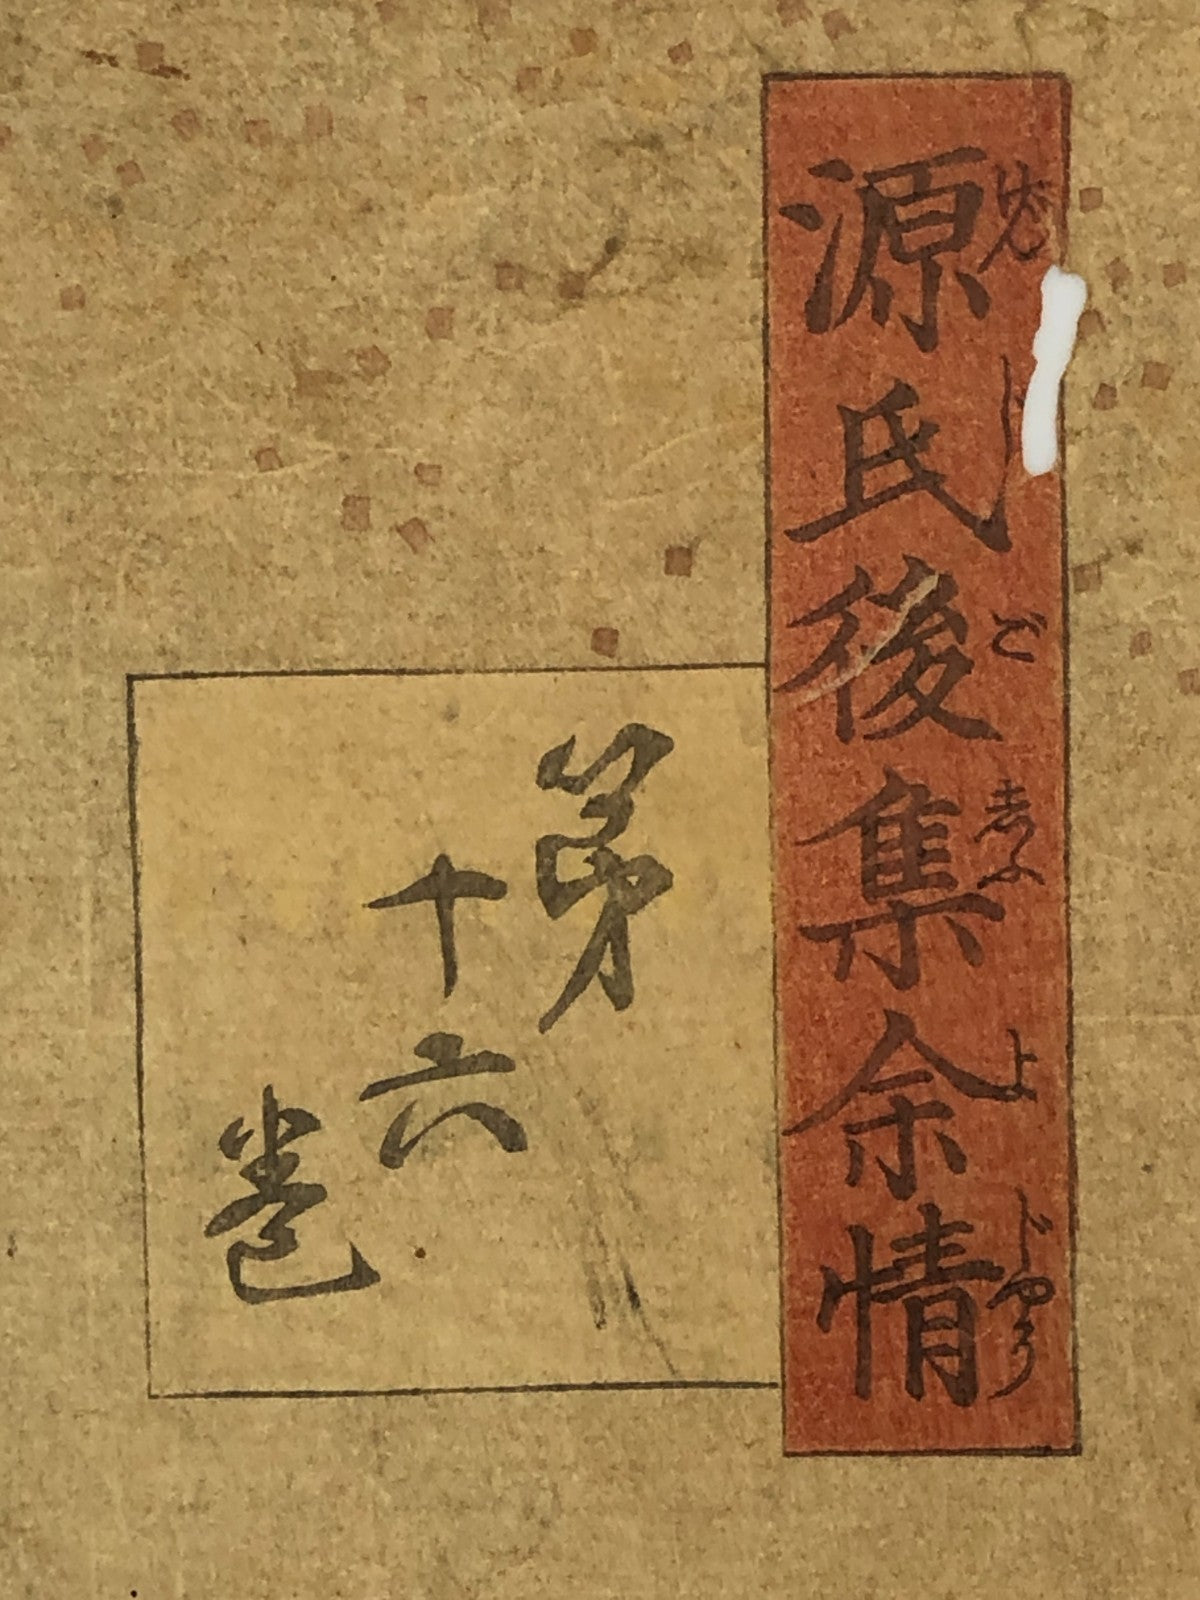 源氏後集余情
げんじごしふよじやう
第
十六
巻